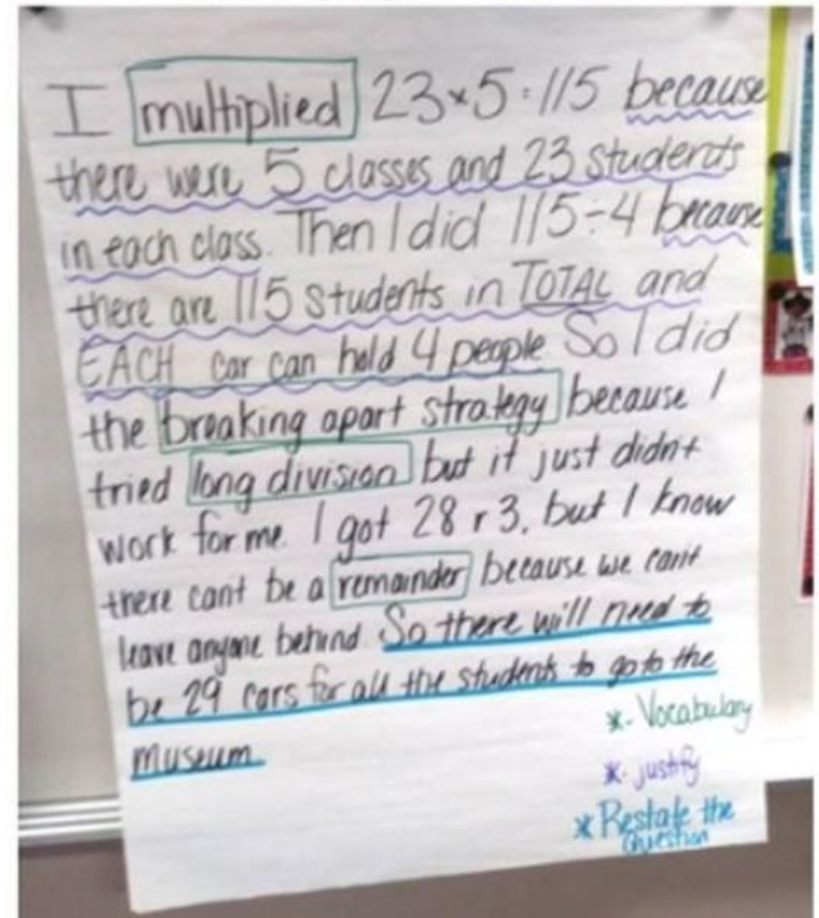 I multiplied 23×5=115 because
there were 5 classes and 23 students
in each class. Then I did 115÷4 because
there are 115 students in TOTAL and
EACH car can hold 4 people So I did
the breaking apart strategy because I
tried long division but it just didn't
work for me. I got 28 r 3, but I know
there cant be a remainder because we can't
leave anyone behind. So there will need to
be 29 cars for all the students to go to the
museum.
*- Vocabulary
*- justify
* Restate the
Question